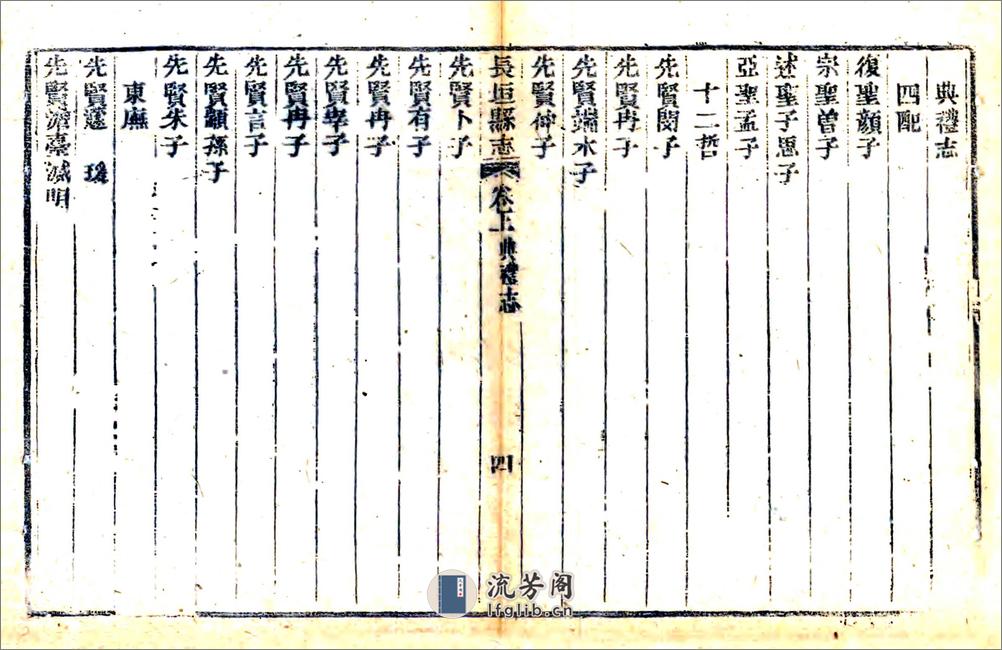 典禮志
四配
復聖顏子
宗聖曾子
述聖子思子
亞聖孟子
十二哲
先賢閔子
先賢冉子
先賢端木子
先賢仲子
長垣縣志 卷上典禮志 四
先賢卜子
先賢有子
先賢冉子
先賢宰子
先賢冉子
先賢言子
先賢顓孫子
先賢朱子
東廡
先賢蘧 瑗
先賢澹臺滅明
流芳阁
lfglib.cn